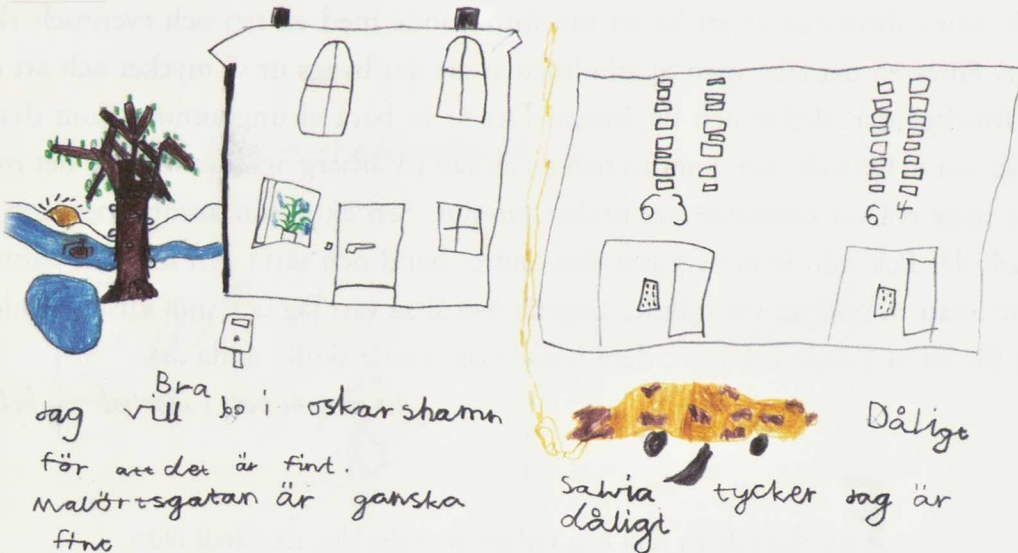 63
64
Bra
Jag vill bo i oskarshamn
för att det är fint.
Malörtsgatan är ganska
fint
Dåligt
Salvia tycker Jag är
dåligt